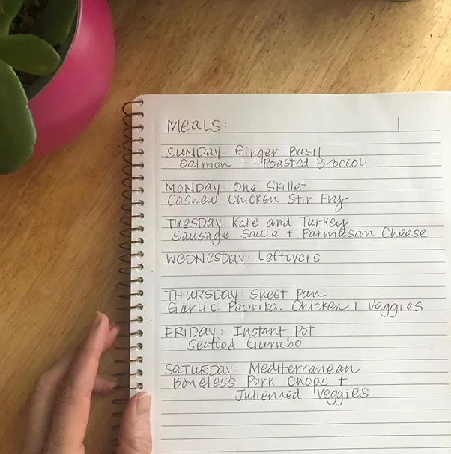 Meals:
SUNDAY: Ginger Basil
Salmon Roasted Broccoli
MONDAY: One Skillet
Cashew Chicken Stir Fry
TUESDAY: Kale and Turkey
Sausage Saute + Parmesan Cheese
WEDNESDAY: Leftovers
THURSDAY: Sheet Pan
Garlic Paprika Chicken / Veggies
FRIDAY: Instant Pot
Seafood Gumbo
SATURDAY: Mediterranean
Boneless Pork Chops +
Julienned Veggies